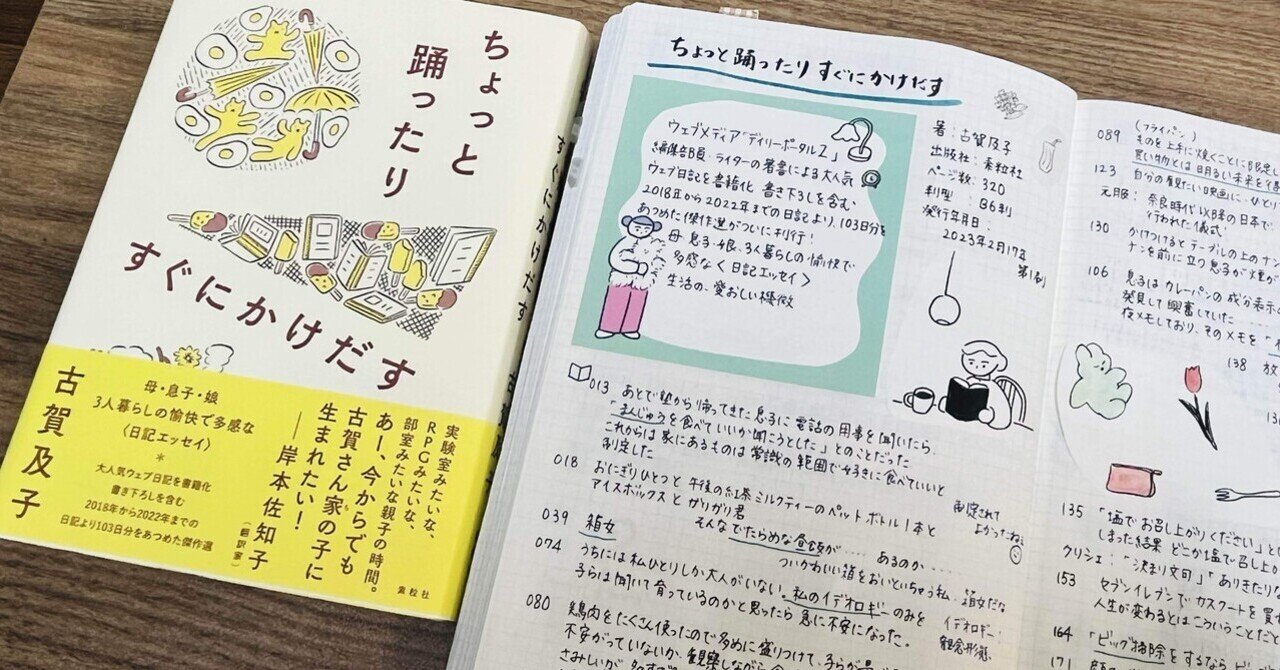 ちょっと
踊ったり
すぐにかけだす
すぐにかけだす
母・息子・娘
3人暮らしの愉快で多感な
〈日記エッセイ〉
*
大人気ウェブ日記を書籍化
書き下ろしを含む
2018年から2022年までの
日記より103日分をあつめた傑作選
古賀及子
実験室みたいな、
RPGみたいな、
部室みたいな親子の時間。
あー、今からでも
古賀さん家の子に
生まれたい!
——岸本佐知子
(翻訳家)
素粒社
ちょっと踊ったり すぐにかけだす
ウェブメディア「デイリーポータルZ」
編集部員・ライターの著書による大人気
ウェブ日記を書籍化 書き下ろしを含む
2018年から2022年までの日記より、103日分を
あつめた傑作選がついに刊行!
母・息子・娘、3人暮らしの愉快で
多感な〈日記エッセイ〉
生活の、愛おしい機微
著:古賀及子
出版社:素粒社
ページ数:320
判型 B6判
発行年月日
2023年2月17日
第1刷
013 あとで塾から帰ってきた息子に電話の用事を聞いたら、
「まんじゅうを食べていいか聞こうとした」とのことだった
これからは家にあるものは常識の範囲で好きに食べていいと
制定した
制定されて
よかったねぇ
018 おにぎりひとつと午後の紅茶ミルクティーのペットボトル1本と
アイスボックスとガリガリ君
そんなでたらめな昼飯が…… あるのか……
039 箱女 ついかわいい箱をおいといちゃう私、箱女だな
074 うちには私ひとりしか大人がいない。私のイデオロギーのみを
子らは聞いて育っているのかと思ったら 急に不安になった。
イデオロギー:
観念形態
080 鶏肉をたくさん使ったので多めに盛りつけて、子らが
不安がっていないか、観察しながら
089 (フライパン)
ものを上手に焼くことに限定し
買い物とは明るい未来を
123 自分の観たい映画に、ひとり
元服: 奈良時代以降の日本で
行われた儀式
130 かけつけるとテーブルの上のナン
ナンを前に立つ息子が
106 息子はカレーパンの成分表示
発見して興奮していた
夜メモしており、そのメモを
138 放
135 「塩でお召し上がりください」と
しまった結果 どこか塩で召し上
クリシェ:「決まり文句」「ありきたりな
153 セブンイレブンでカスクートを買
人生が変わるとはこういうことだ
164 「ビッグ掃除をするなら
171